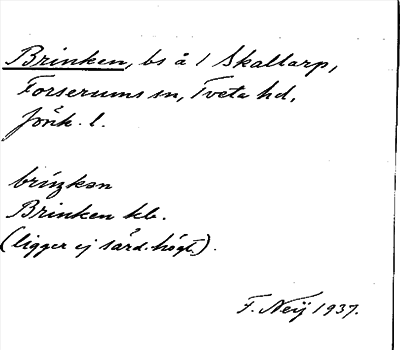 Brinken, bs å 1 Skallarp,
Forserums sn, Tveta hd,
Jönk. l.
briŋkən
Brinken kb.
(ligger ej särd. högt.).
F. Neij 1937.